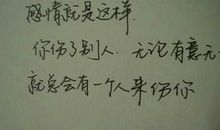 感情就是这样.
你伤了别人.无论有意无
就总会有一个人来伤你